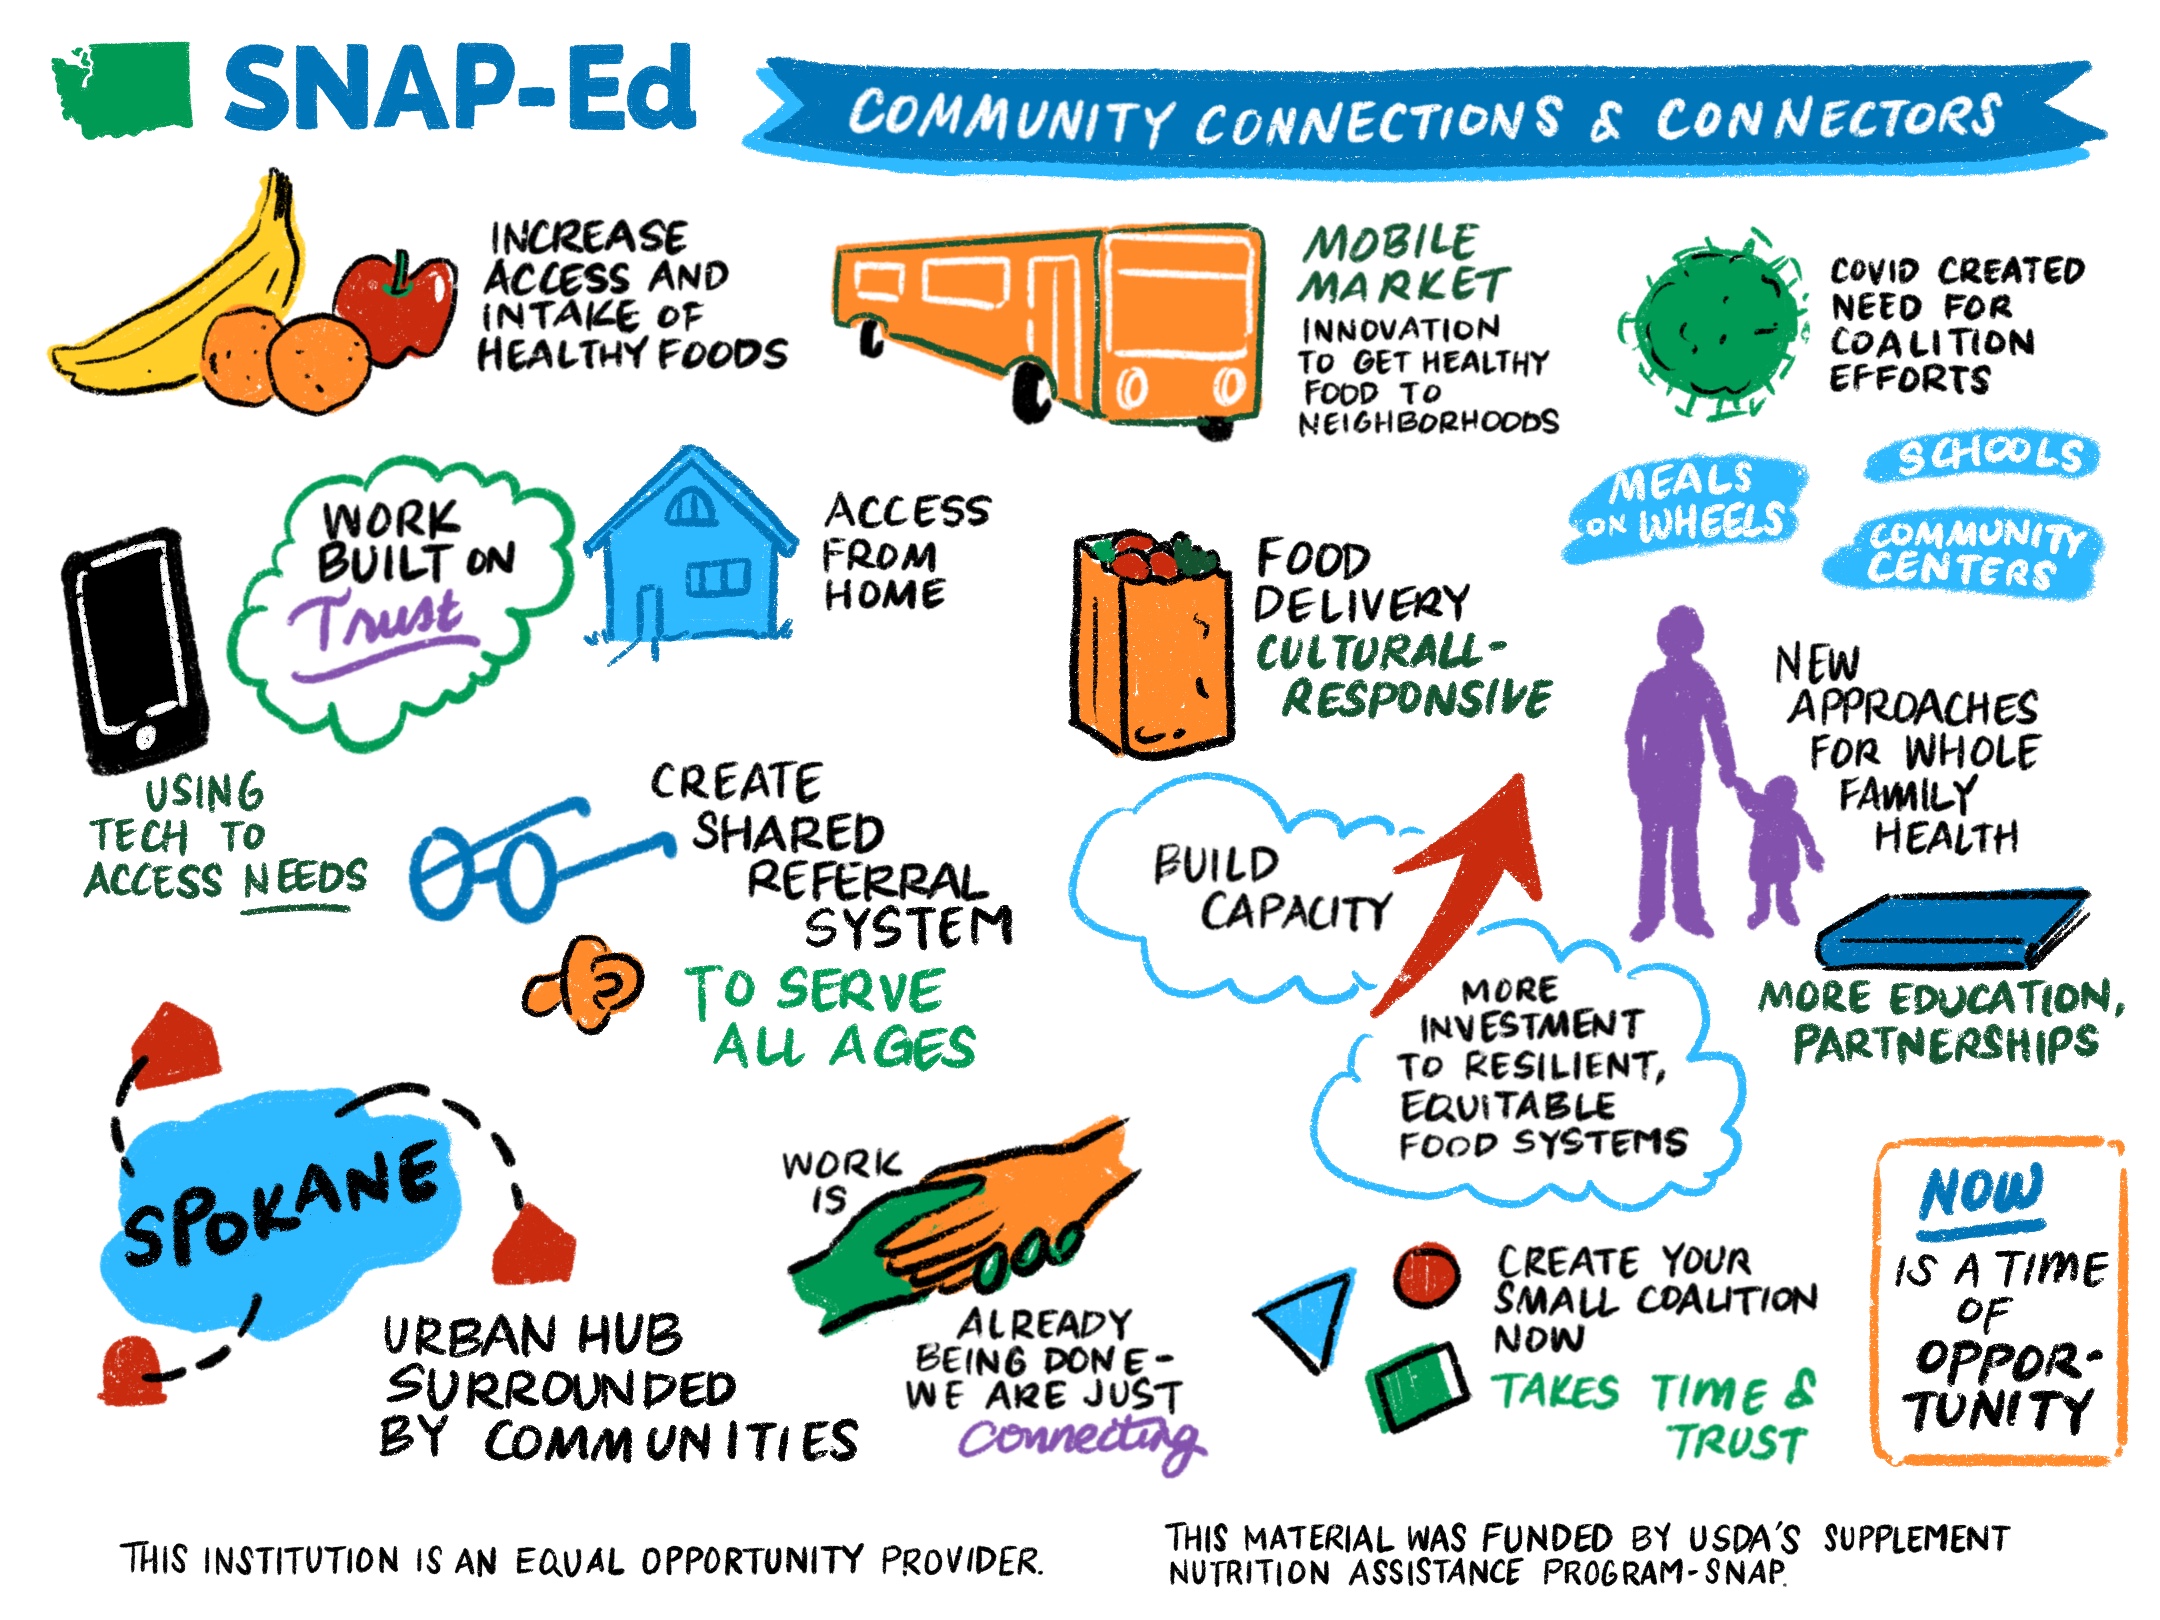 SNAP-Ed
COMMUNITY CONNECTIONS & CONNECTORS
INCREASE
ACCESS AND
INTAKE OF
HEALTHY FOODS
MOBILE
MARKET
INNOVATION
TO GET HEALTHY
FOOD TO
NEIGHBORHOODS
COVID CREATED
NEED FOR
COALITION
EFFORTS
MEALS
ON WHEELS
SCHOOLS
COMMUNITY
CENTERS
WORK
BUILT ON
Trust
ACCESS
FROM
HOME
FOOD
DELIVERY
CULTURALL-
RESPONSIVE
NEW
APPROACHES
FOR WHOLE
FAMILY
HEALTH
USING
TECH TO
ACCESS NEEDS
CREATE
SHARED
REFERRAL
SYSTEM
TO SERVE
ALL AGES
BUILD
CAPACITY
MORE
INVESTMENT
TO RESILIENT,
EQUITABLE
FOOD SYSTEMS
MORE EDUCATION,
PARTNERSHIPS
SPOKANE
URBAN HUB
SURROUNDED
BY COMMUNITIES
WORK
IS
ALREADY
BEING DONE-
WE ARE JUST
Connecting
CREATE YOUR
SMALL COALITION
NOW
TAKES TIME &
TRUST
NOW
IS A TIME
OF
OPPOR-
TUNITY
THIS INSTITUTION IS AN EQUAL OPPORTUNITY PROVIDER.
THIS MATERIAL WAS FUNDED BY USDA'S SUPPLEMENT
NUTRITION ASSISTANCE PROGRAM-SNAP.